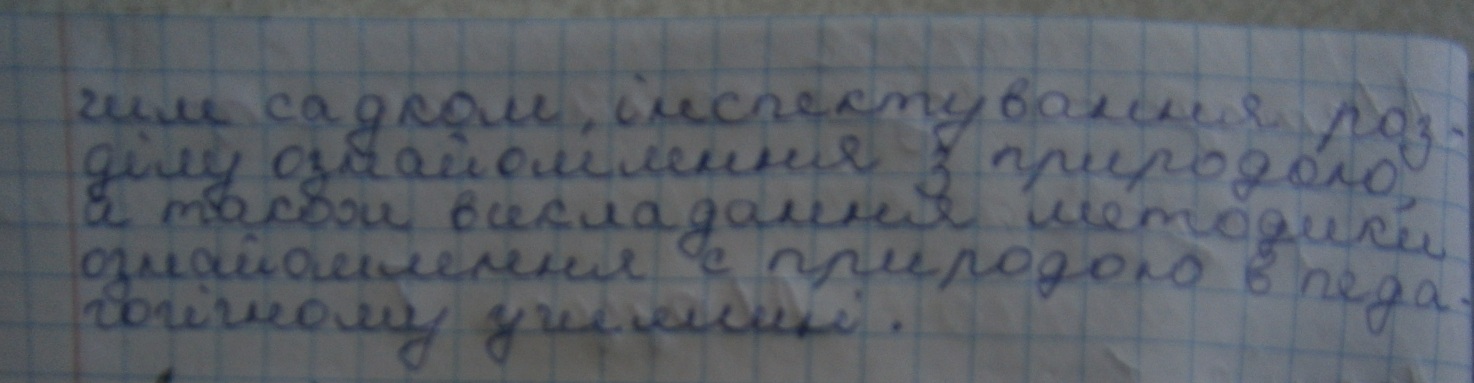 чим садком, інспектування роз-
ділу ознайомлення з природою,
а також викладання методики
ознайомлення с природою в педа-
гогічному училищі.